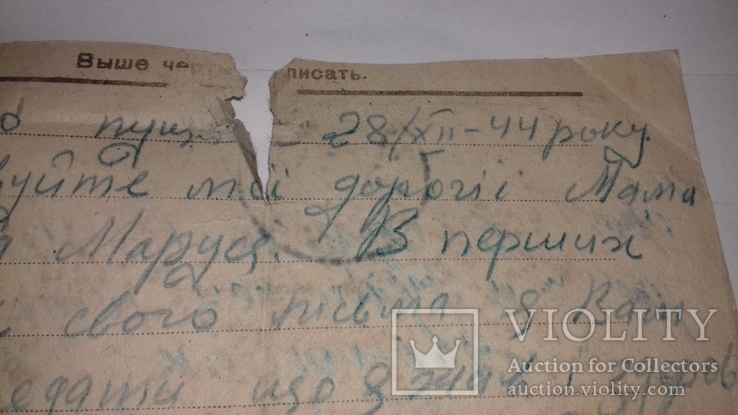 Выше чер писать.
пущ 28/XII-44 року.
вуйте мої дорогії Мама
Маруся. В перших
свого письма я Вам
що я жив і здоров
VIOLITY
Auction for Collectors
auction.violity.com